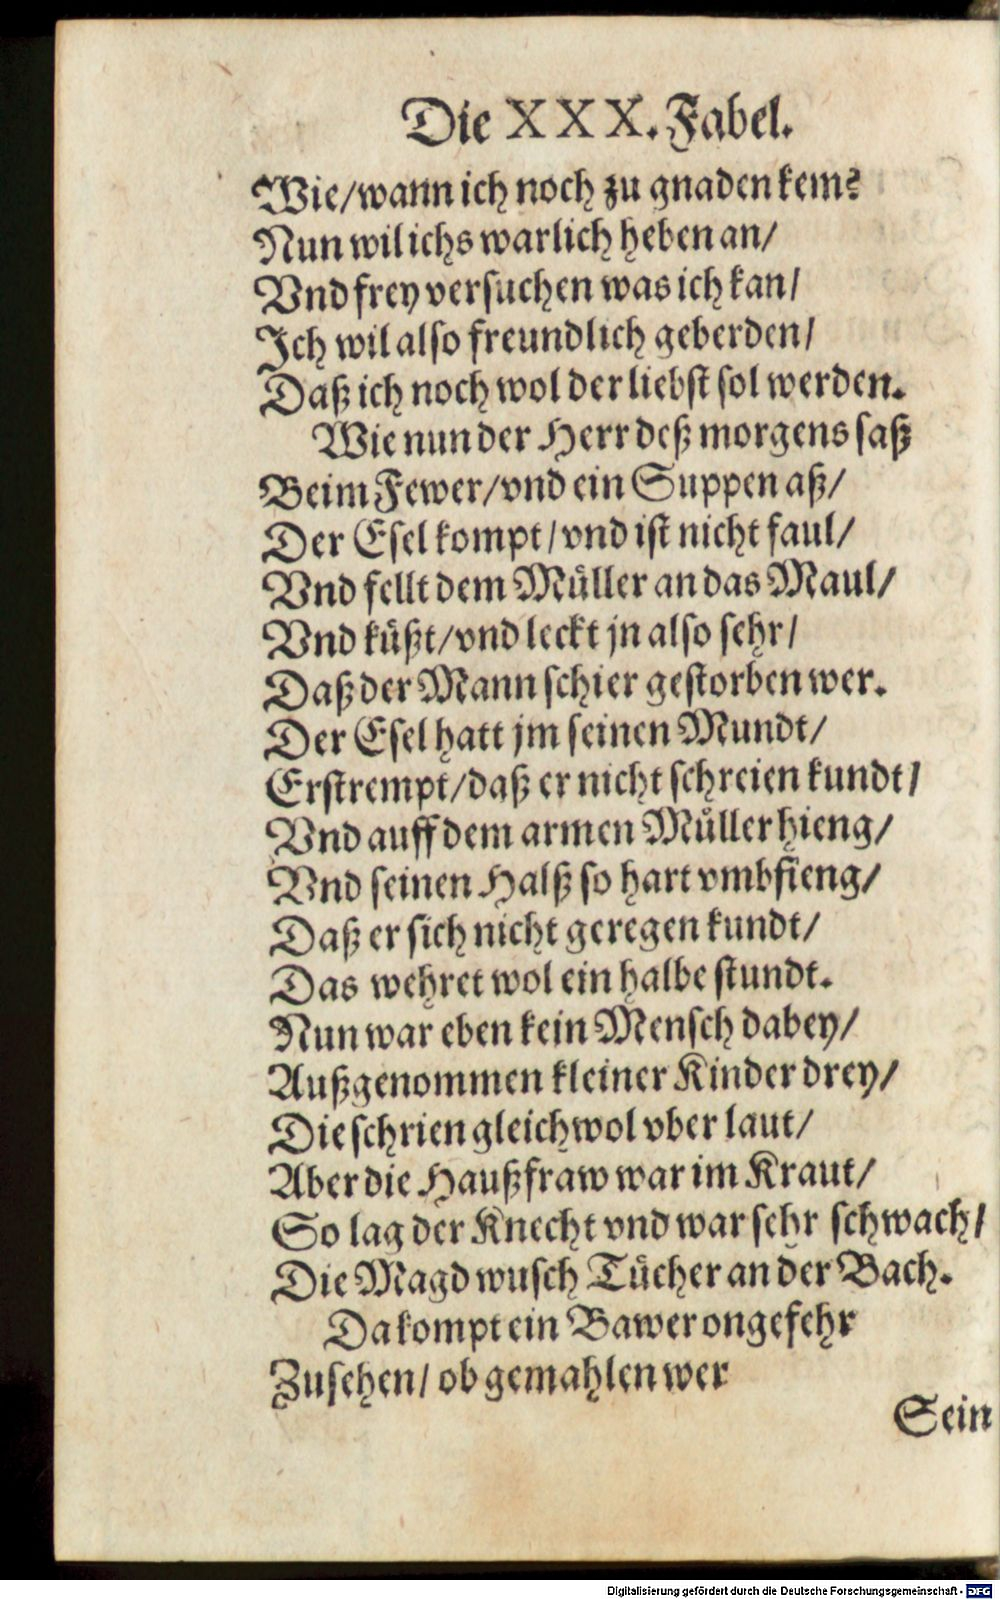 Die XXX. Fabel.
Wie/wann ich noch zu gnaden kem?
Nun wil ichs warlich heben an/
Vnd frey versuchen was ich kan/
Ich wil also freundlich geberden/
Daß ich noch wol der liebst sol werden.
Wie nun der Herr deß morgens saß
Beim Fewer/vnd ein Suppen aß/
Der Esel kompt/vnd ist nicht faul/
Vnd fellt dem Müller an das Maul/
Vnd küßt/vnd leckt jn also sehr/
Daß der Mann schier gestorben wer.
Der Esel hatt jm seinen Mundt/
Erstrempt/daß er nicht schreien kundt/
Vnd auff dem armen Müller hieng/
Vnd seinen Halß so hart vmbfieng/
Daß er sich nicht geregen kundt/
Das wehret wol ein halbe stundt.
Nun war eben kein Mensch dabey/
Außgenommen kleiner Kinder drey/
Die schrien gleichwol vber laut/
Aber die Haußfraw war im Kraut/
So lag der Knecht vnd war sehr schwach/
Die Magd wusch Tücher an der Bach.
Da kompt ein Bawer ongefehr
Zusehen/ob gemahlen wer
Sein
Digitalisierung gefördert durch die Deutsche Forschungsgemeinschaft - DFG